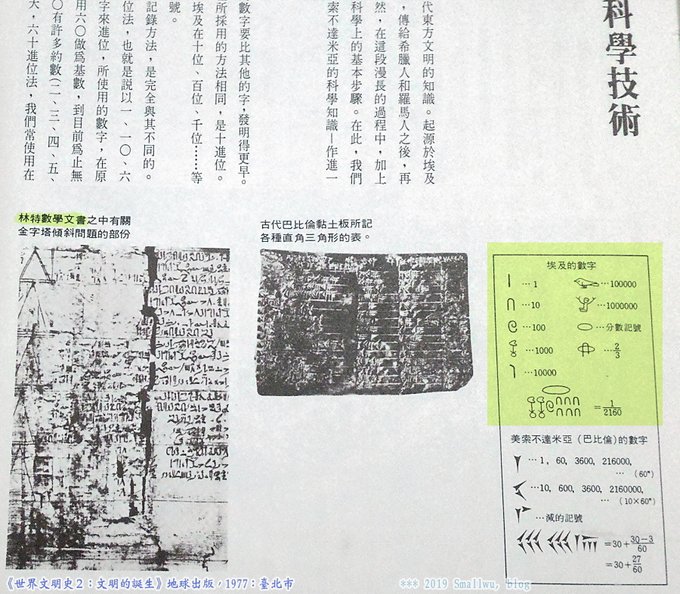 科學技術
代東方文明的知識。起源於埃及
，傳給希臘人和羅馬人之後，再
然，在這段漫長的過程中，加上
科學上的基本步驟。在此，我們
索不達米亞的科學知識—作進一
數字要比其他的字，發明得更早。
所採用的方法相同，是十進位。
埃及在十位、百位、千位……等
號。
記錄方法，是完全與其不同的。
位法，也就是說以一、一〇、六
字來進位，所使用的數字，在原
用六〇做爲基數，到目前爲止無
〇有許多約數(二、三、四、五、
大，六十進位法，我們常使用在
林特數學文書之中有關
金字塔傾斜問題的部份
古代巴比倫黏土板所記
各種直角三角形的表。
埃及的數字
…1
…10
…100
…1000
…10000
…100000
…1000000
…分數記號
…2/3
=1/2160
美索不達米亞（巴比倫）的數字
…1, 60, 3600, 216000,
…（60ⁿ）
…10, 600, 3600, 2160000,
…（10×60ⁿ）
…減的記號
=30+30−3/60
=30+27/60
《世界文明史2：文明的誕生》地球出版，1977：臺北市
*** 2019 Smallwu, blog